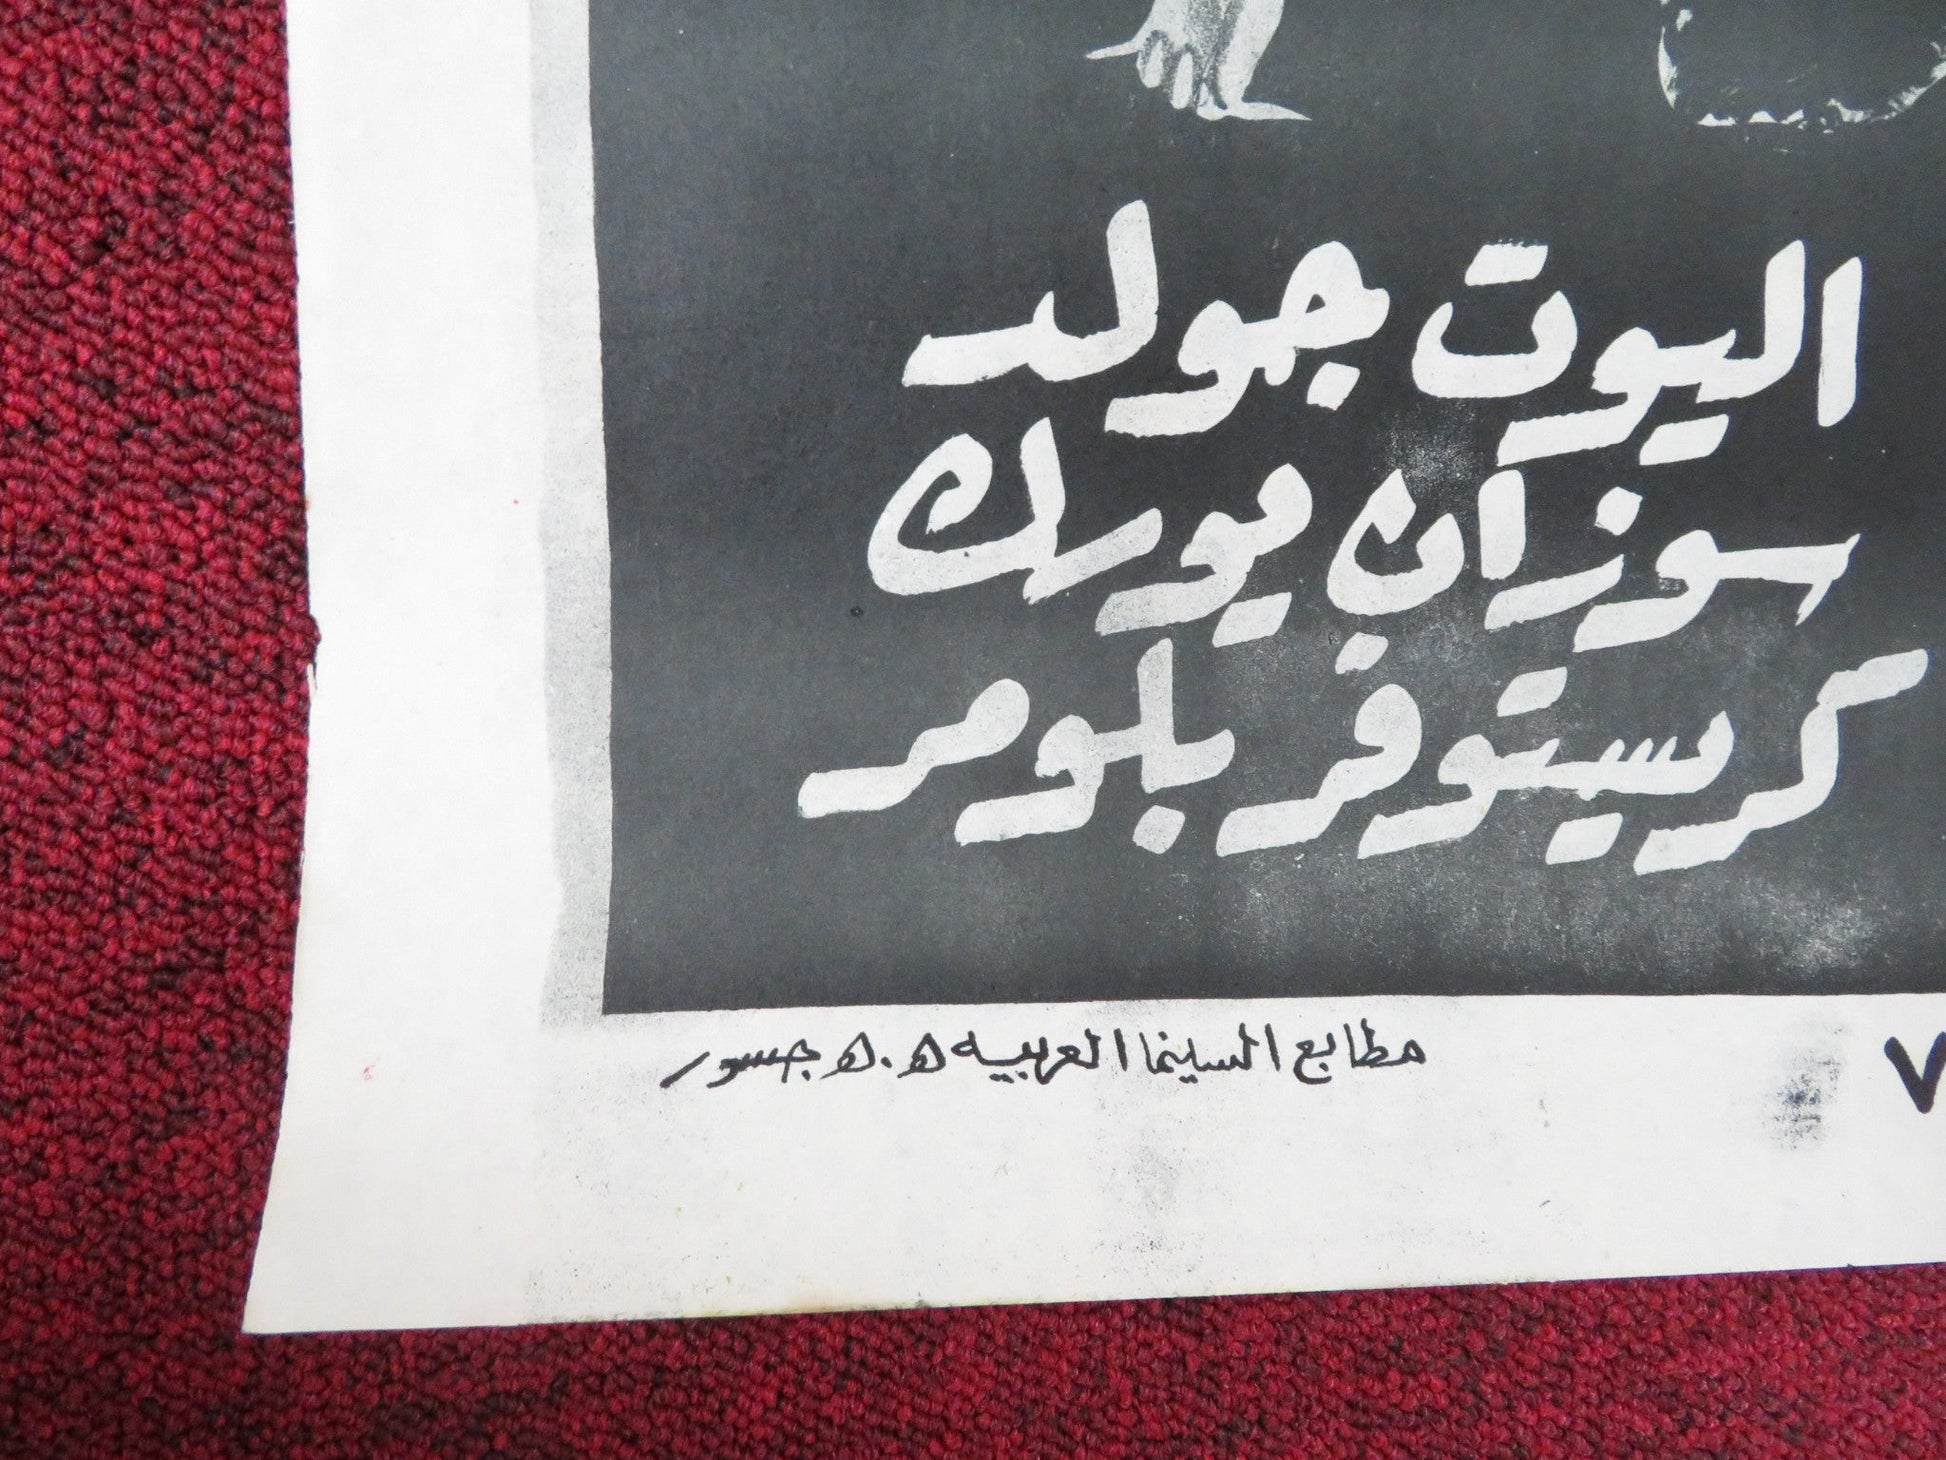 اليوت جولد
سوزان يورك
كريستوفر بلومر
مطابع السينما العربيه ه‍ . ه‍ جسور
٧